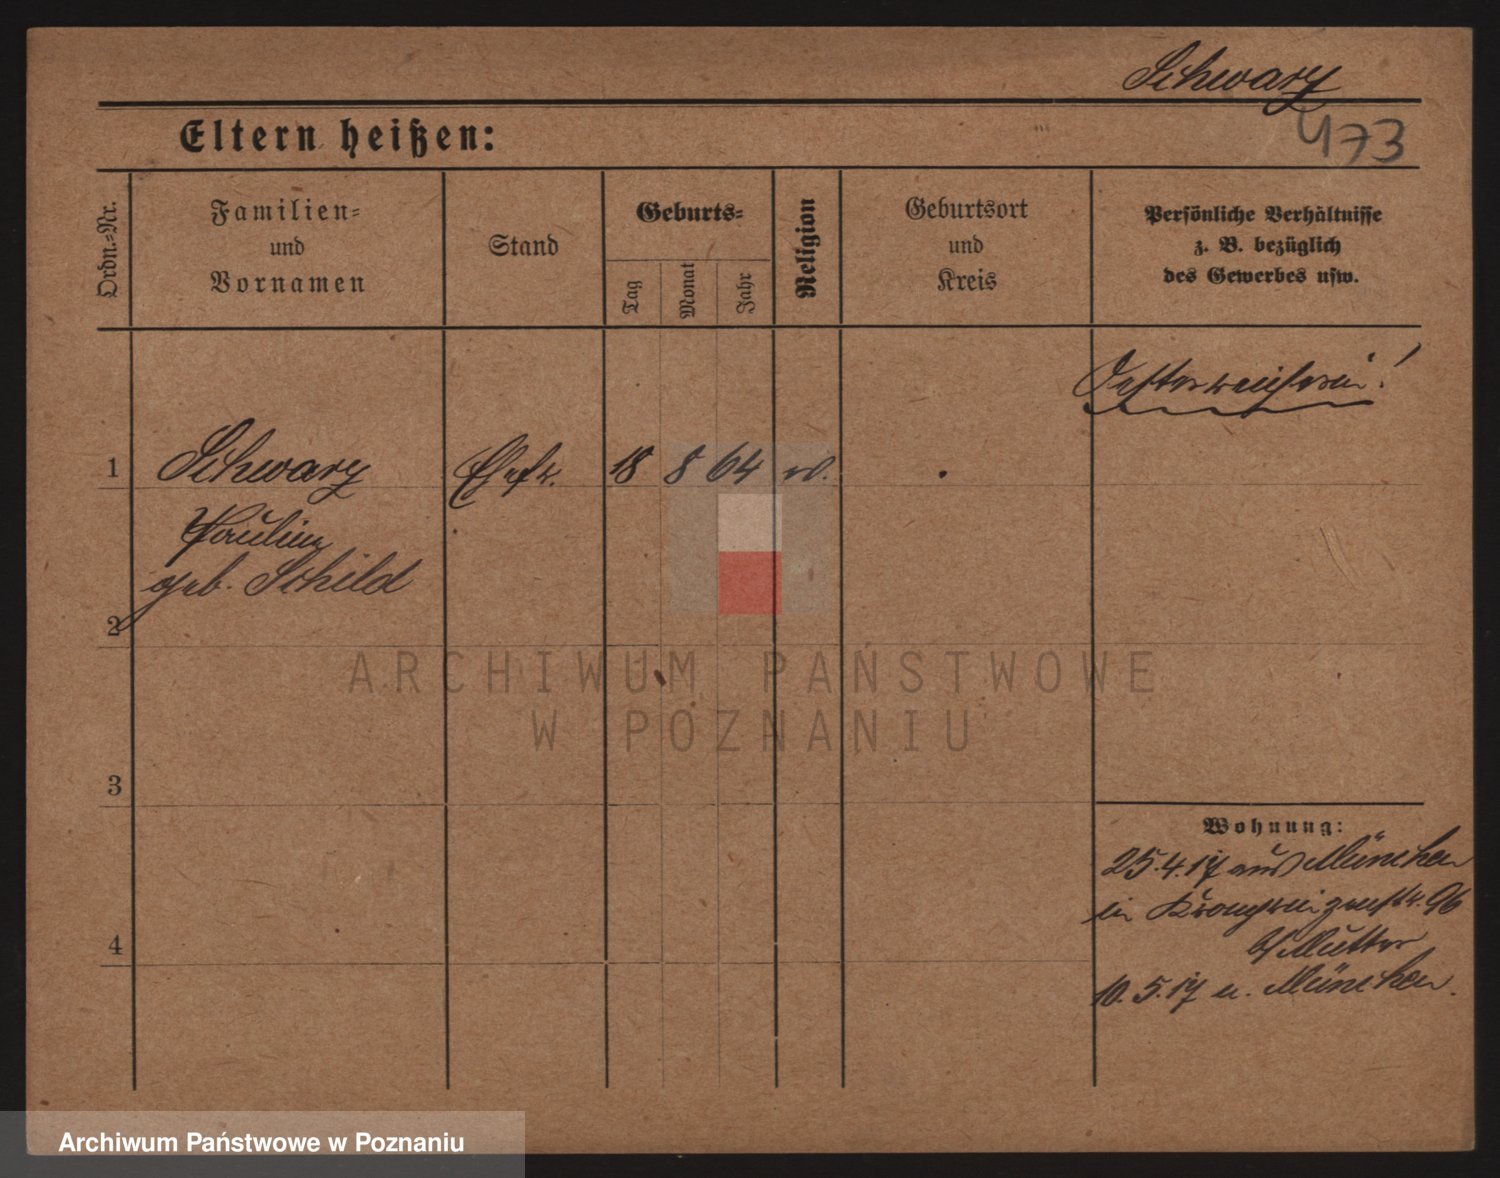 Schwarz
473
Eltern heißen:
Ordn.-Nr.
Familien-
und
Vornamen
Stand
Geburts-
Tag
Monat
Jahr
Religion
Geburtsort
und
Kreis
Persönliche Verhältnisse
z. B. bezüglich
des Gewerbes usw.
Oesterreicherin!
1 Schwarz Ehefr. 18 8 64
Pauline
geb. Schild
2
3
4
Wohnung:
25.4.17 aus München
in Kronprinzenstr. 96
b/ Mutter
10.5.17 n. München.
ARCHIWUM PAŃSTWOWE
W POZNANIU
Archiwum Państwowe w Poznaniu